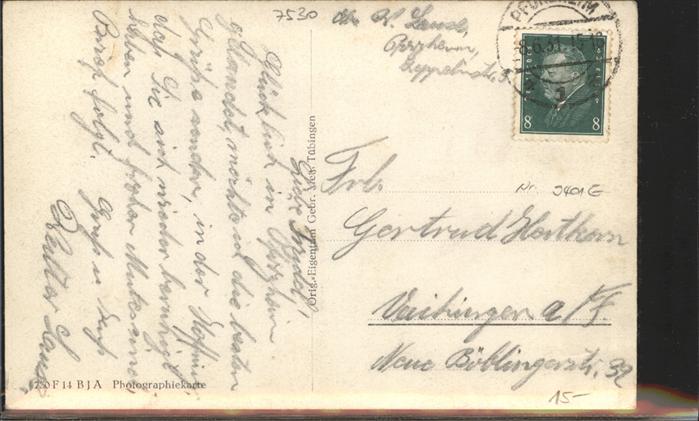 7530
Abs. W. Lauser,
Pforzheim,
Zeppelinstr. 3
PFORZHEIM
8.6.31. 15-16
DEUTSCHES REICH
8 8
Liebe Trudel!
Glücklich in Pforzheim
gelandet, möchte ich die besten
Grüße senden, in der Hoffnung,
daß Sie sich wieder beruhigt
haben und frohen Mutes sind.
Brief folgt.
Gruß u. Kuß
Walter Lauser
Orig.-Eigentum Gebr. Metz, Tübingen
Frl.
Nr. 3401 E
Gertrud Hertkorn
Vaihingen a/F.
Neue Böblingerstr. 32
F 14 B J A Photographiekarte
15-